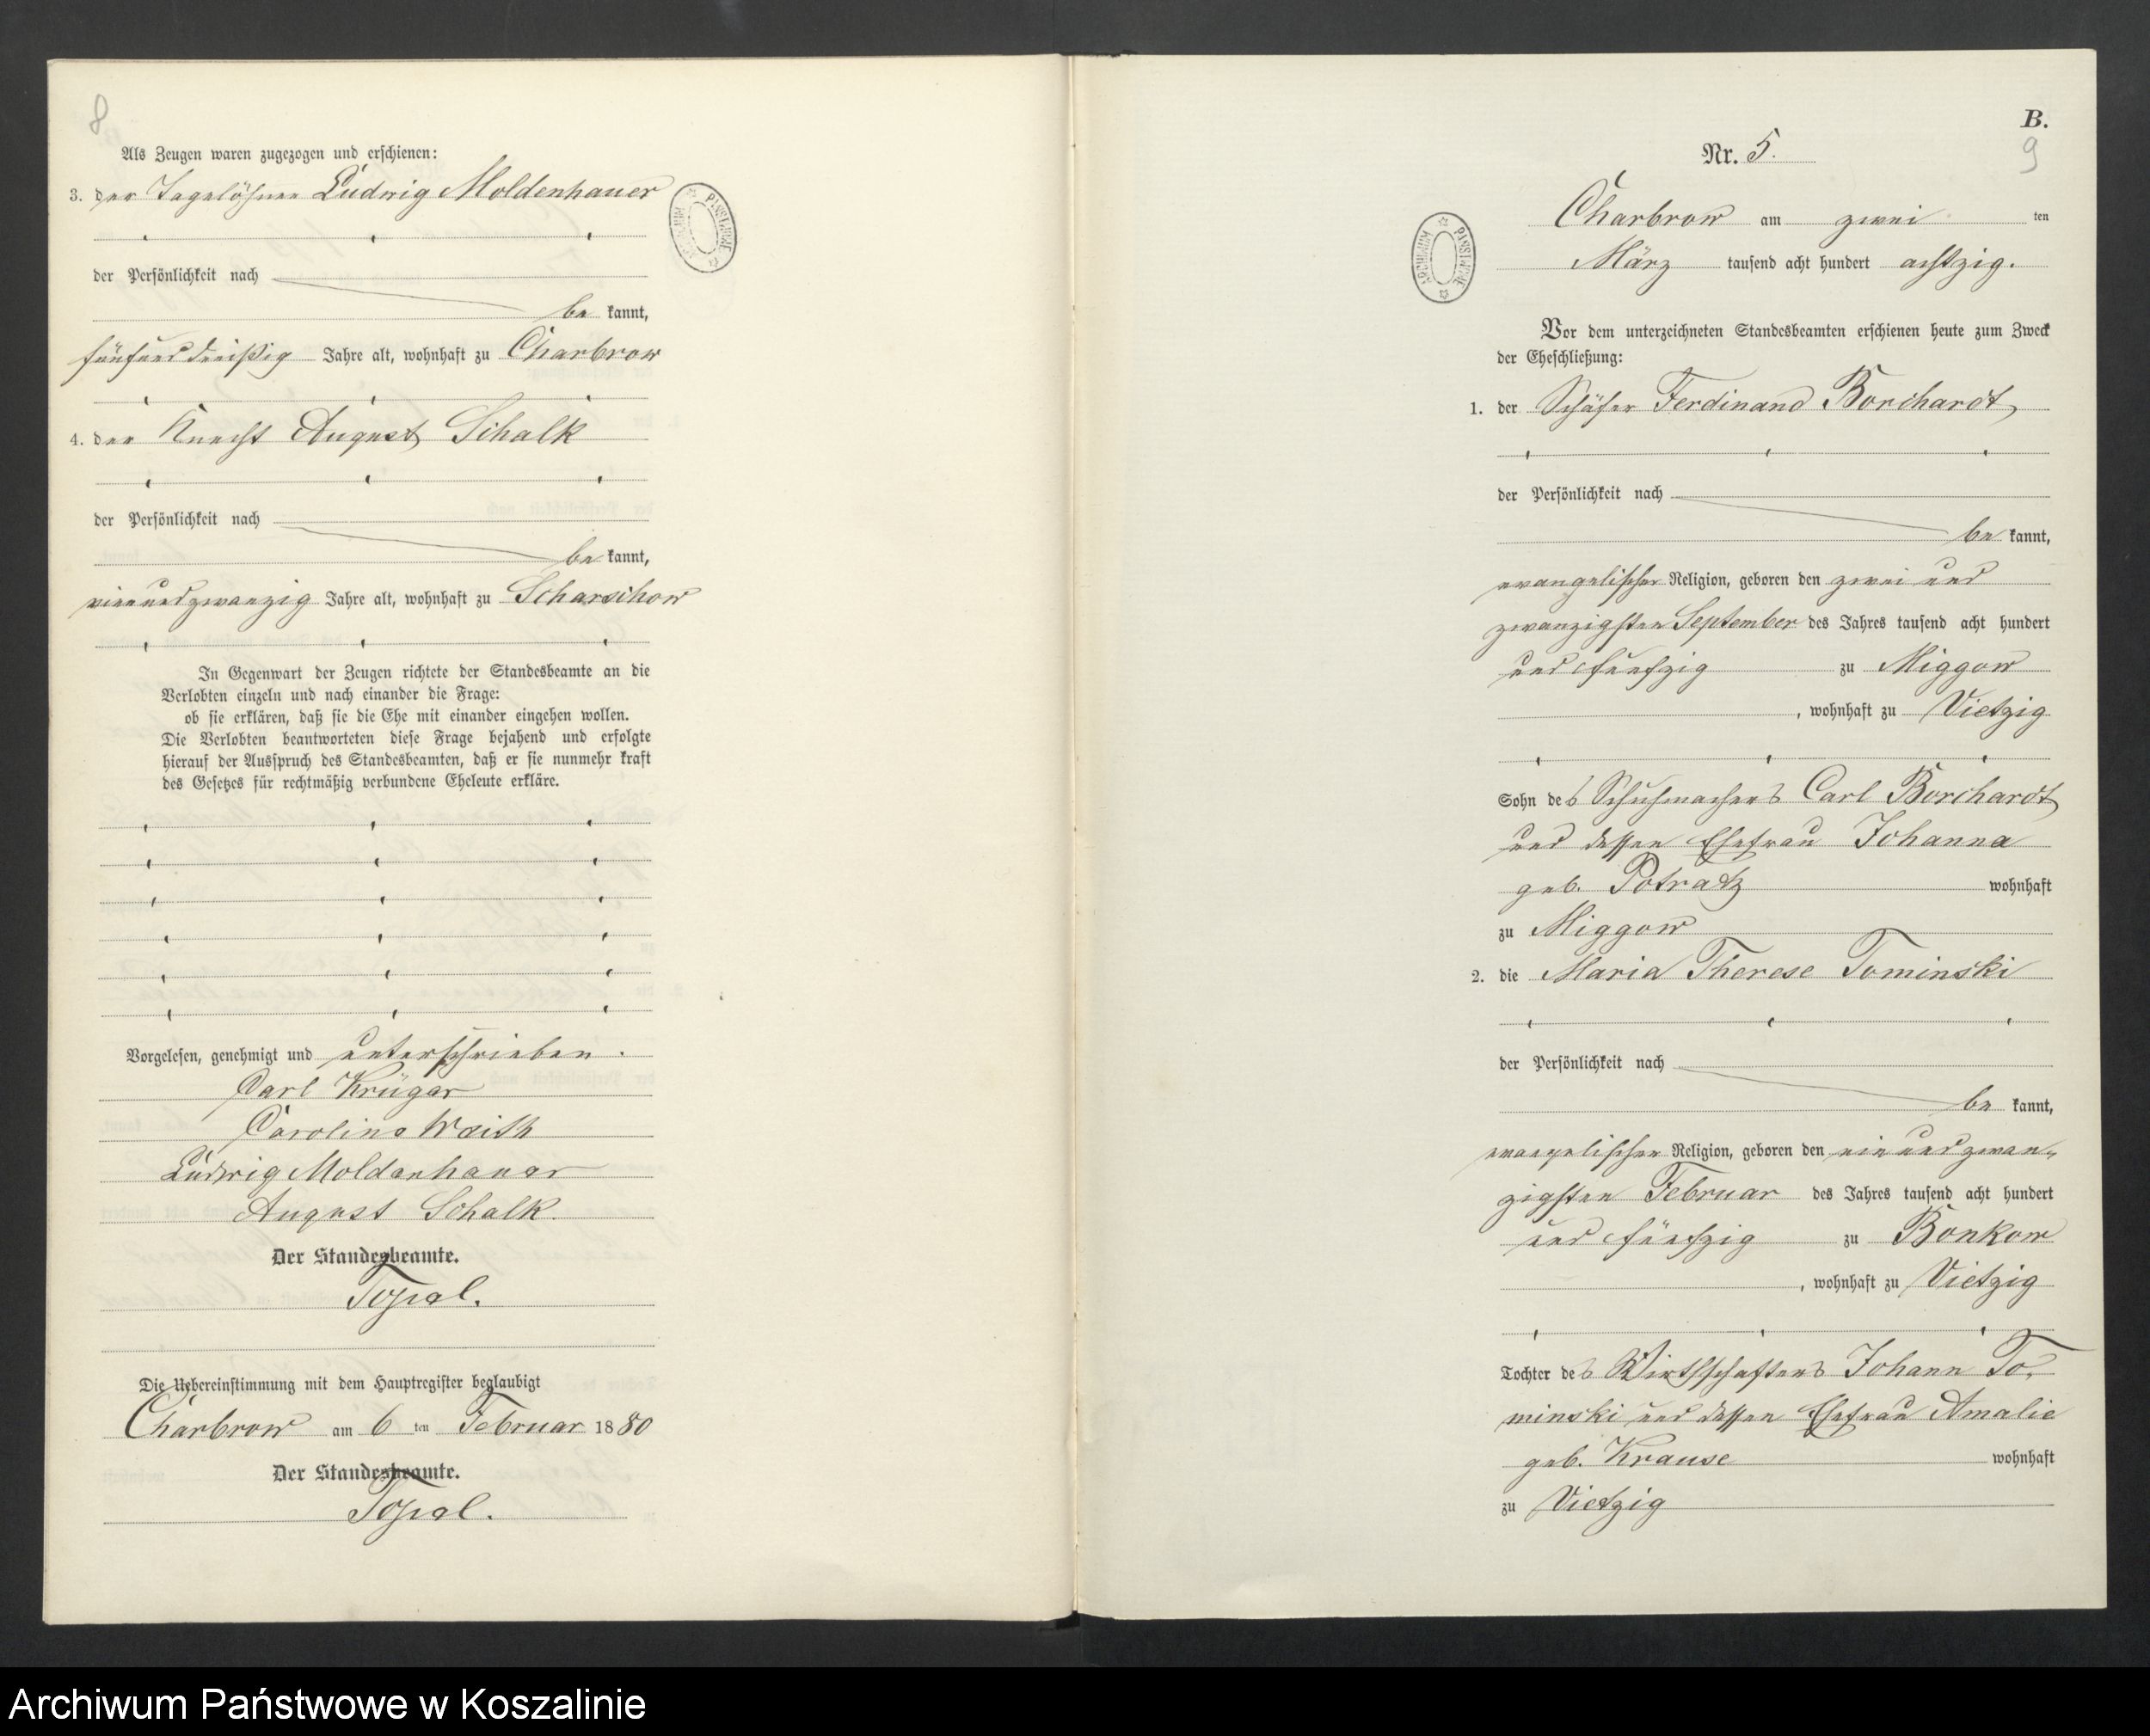 8
Als Zeugen waren zugezogen und erschienen:
3. der Tagelöhner Ludwig Moldenhauer
der Persönlichkeit nach
be kannt,
fünfunddreißig Jahre alt, wohnhaft zu Charbrow
4. der Knecht August Schalk
der Persönlichkeit nach
be kannt,
vierundzwanzig Jahre alt, wohnhaft zu Scharschow
In Gegenwart der Zeugen richtete der Standesbeamte an die
Verlobten einzeln und nach einander die Frage:
ob sie erklären, daß sie die Ehe mit einander eingehen wollen.
Die Verlobten beantworteten diese Frage bejahend und erfolgte
hierauf der Ausspruch des Standesbeamten, daß er sie nunmehr kraft
des Gesetzes für rechtmäßig verbundene Eheleute erkläre.
Vorgelesen, genehmigt und unterschrieben.
Carl Krüger
Caroline
Ludwig Moldenhauer
August Schalk.
Der Standesbeamte.
Die Uebereinstimmung mit dem Hauptregister beglaubigt
Charbrow am 6 ten Februar 1880
Der Standesbeamte.
ARCHIWUM PAŃSTWOWE
B.
9
Nr. 5.
Charbrow am zwei ten
März tausend acht hundert achtzig.
ARCHIWUM PAŃSTWOWE
Vor dem unterzeichneten Standesbeamten erschienen heute zum Zweck
der Eheschließung:
1. der Schäfer Ferdinand Borchardt
der Persönlichkeit nach
be kannt,
evangelischer Religion, geboren den zwei und
zwanzigsten September des Jahres tausend acht hundert
und fünfzig zu Miggow
, wohnhaft zu Vietzig
Sohn des Schuhmachers Carl Borchardt
und dessen Ehefrau Johanna
geb. Potratz wohnhaft
zu Miggow
2. die Maria Therese Tominski
der Persönlichkeit nach
be kannt,
evangelischer Religion, geboren den ein und zwan-
zigsten Februar des Jahres tausend acht hundert
und fünfzig zu Bonkow
, wohnhaft zu Vietzig
Tochter des Wirthschafters Johann To-
minski und dessen Ehefrau Amalie
geb. Krause wohnhaft
zu Vietzig
Archiwum Państwowe w Koszalinie